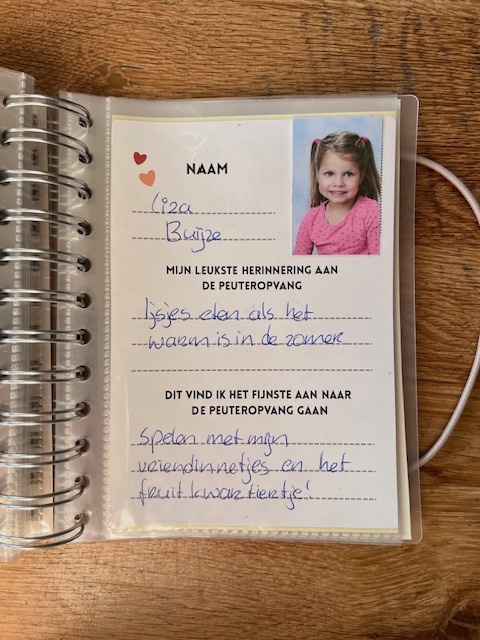 NAAM
Liza
Buijze
MIJN LEUKSTE HERINNERING AAN
DE PEUTEROPVANG
Ijsjes eten als het
warm is in de zomer
DIT VIND IK HET FIJNSTE AAN NAAR
DE PEUTEROPVANG GAAN
Spelen met mijn
vriendinnetjes en het
fruit kwartiertje!